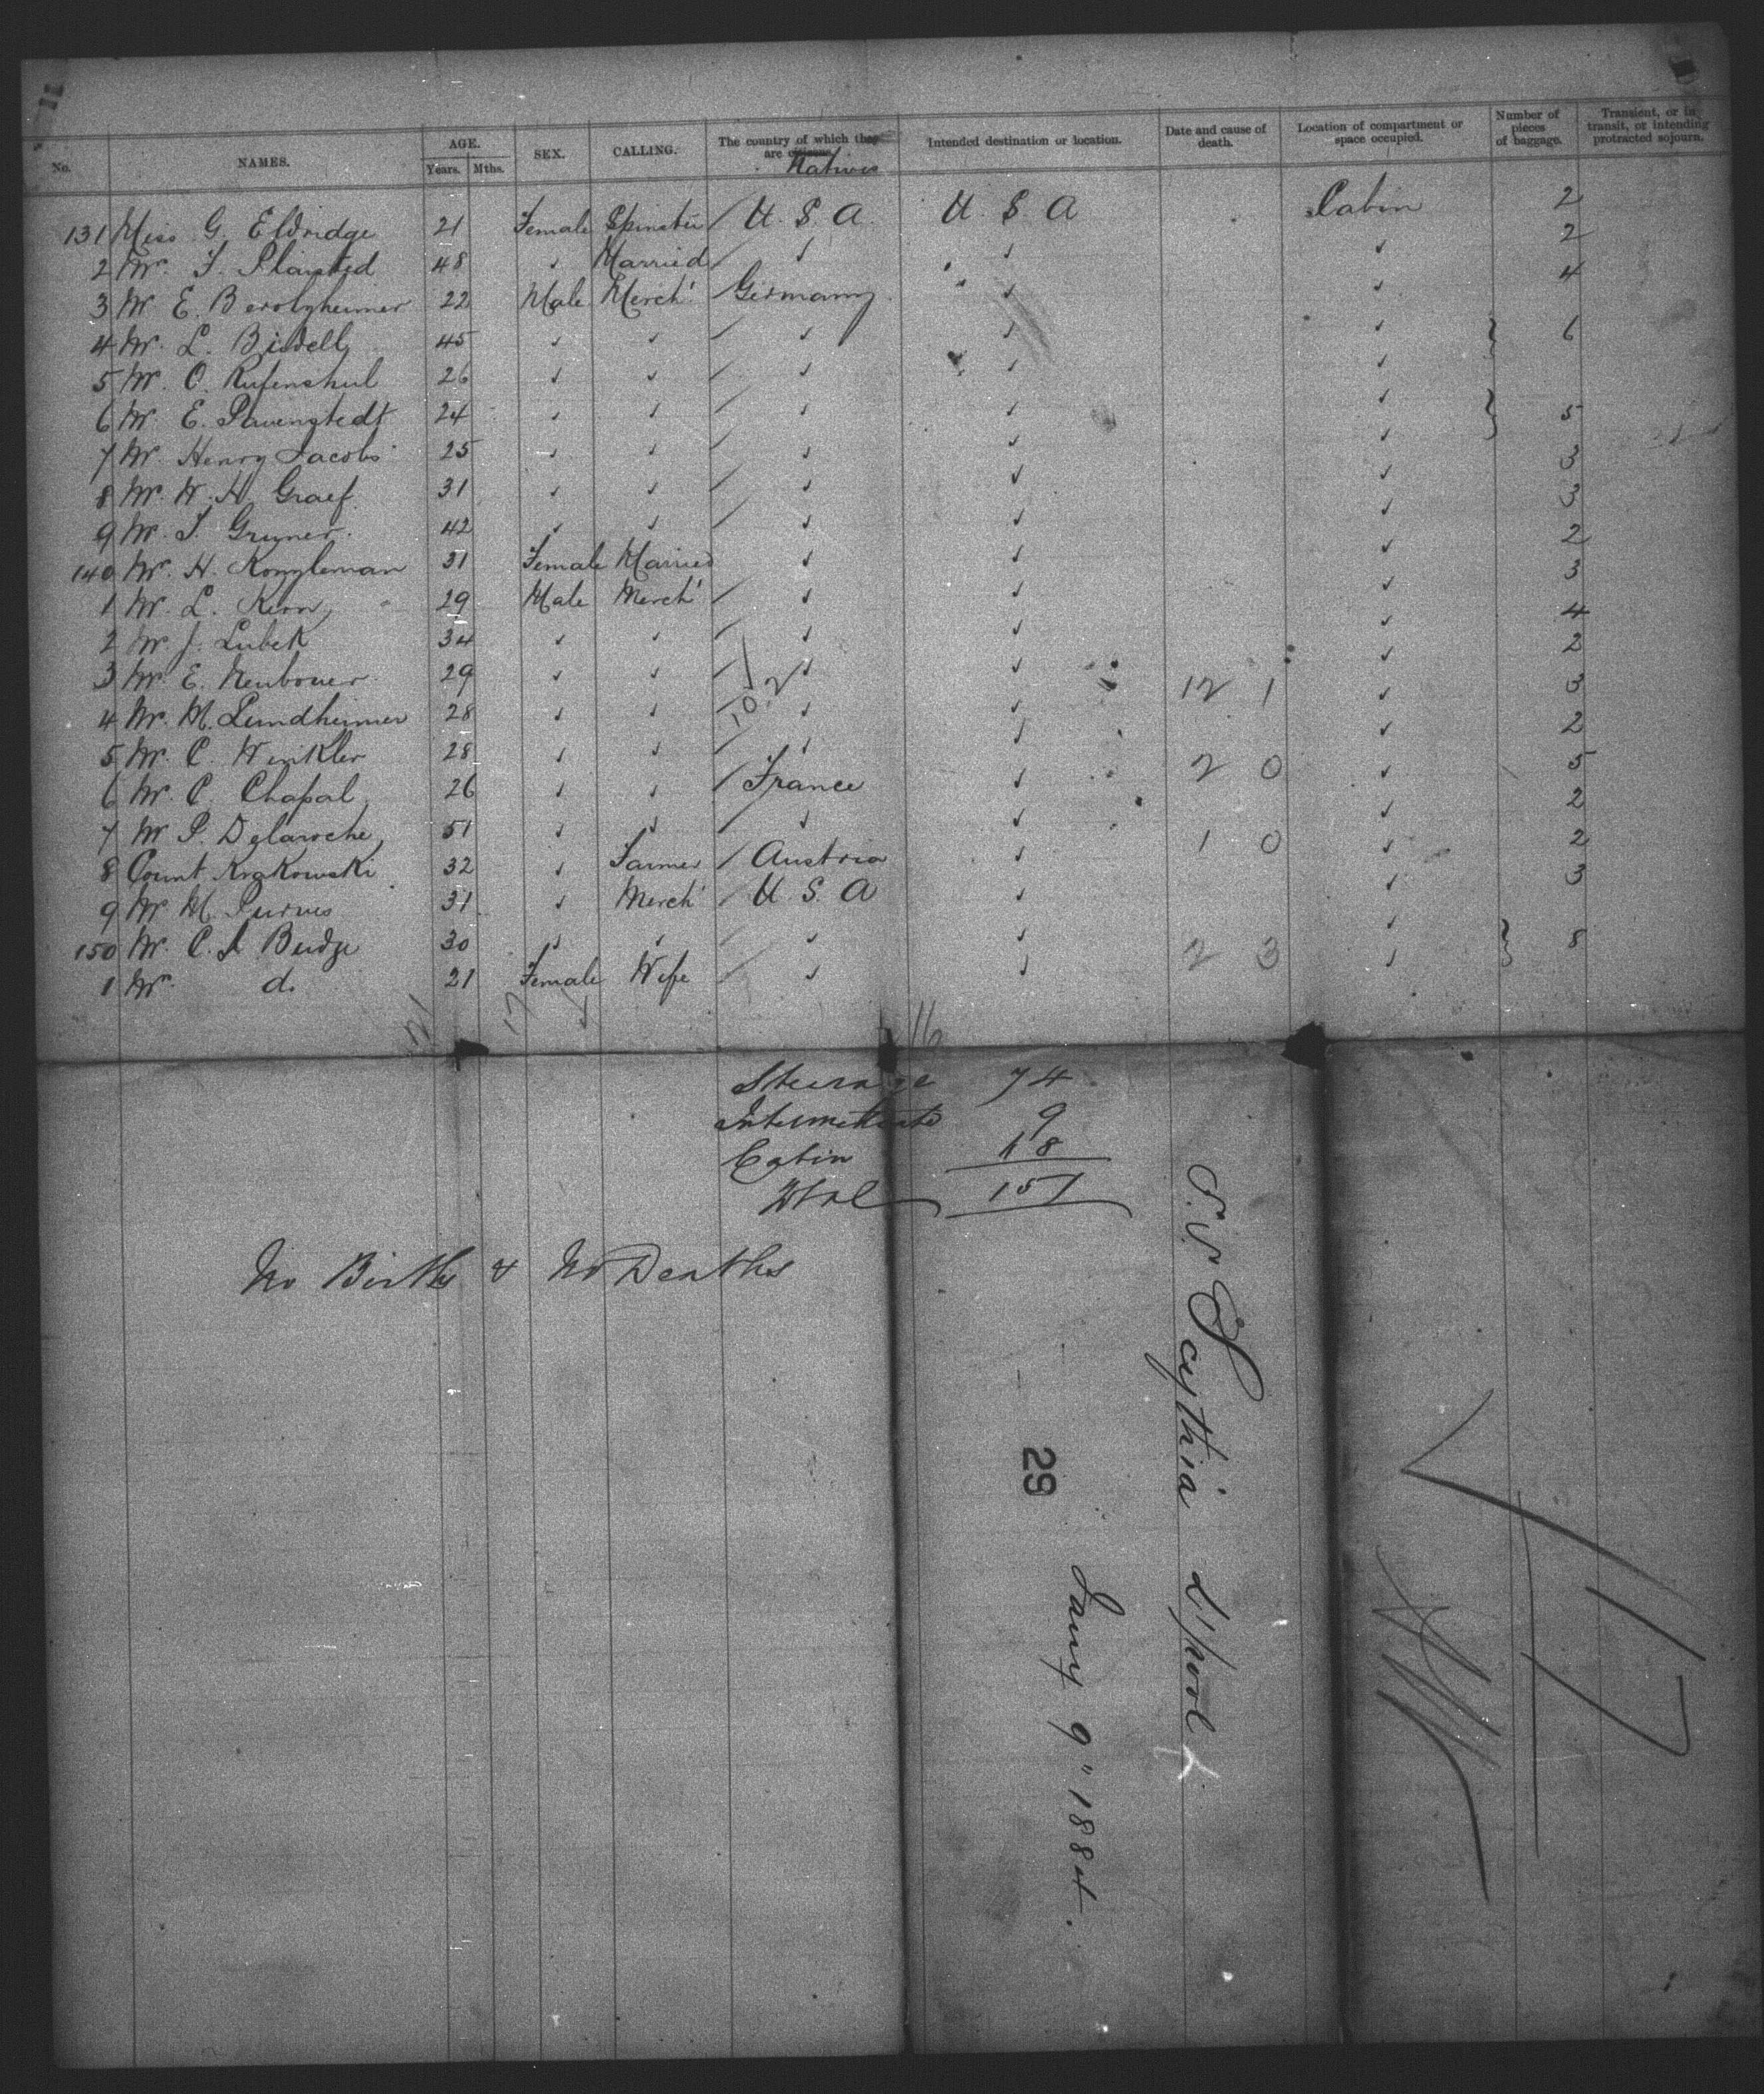 No. NAMES. AGE. Years. Mths. SEX. CALLING. The country of which they are citizens. Natives Intended destination or location. Date and cause of death. Location of compartment or space occupied. Number of pieces of baggage. Transient, or in transit, or intending protracted sojourn.
131 Miss G. Eldridge 21 Female Spinster / U. S. A. U. S. A Cabin 2
2 Mrs. F. Plaisted 48 ✓ Married / ✓ ✓ ✓ 2
3 Mr. E. Berolzheimer 22 Male Merch' / Germany ✓ ✓ 4
4 Mr. L. 45 ✓ ✓ / ✓ ✓ ✓ } 6
5 Mr. O. 26 ✓ ✓ / ✓ ✓ ✓
6 Mr. E. Pavenstedt 24 ✓ ✓ / ✓ ✓ ✓ } 5
7 Mr. Henry Jacobs 25 ✓ ✓ / ✓ ✓ ✓
8 Mr. W. H. Graef 31 ✓ ✓ / ✓ ✓ ✓ 3
9 Mr. Gruner 42 ✓ ✓ / ✓ ✓ ✓ 3
140 Mrs. H. 31 Female Married ✓ ✓ ✓ 2
1 Mr. L. Kern 29 Male Merch' / ✓ ✓ ✓ 3
2 Mr. J. Lubek 34 ✓ ✓ / ✓ ✓ ✓ 4
3 Mr. E. Neubouer 29 ✓ ✓ / ✓ ✓ 12 1 ✓ 2
4 Mr. M. 28 ✓ ✓ / ✓ ✓ ✓ 3
5 Mr. C. Winkler 28 ✓ ✓ / ✓ ✓ 2 0 ✓ 2
6 Mr. C. Chapal 26 ✓ ✓ / France ✓ ✓ 5
7 Mr P. Delaroche 51 ✓ ✓ / ✓ ✓ 1 0 ✓ 2
8 Count Krakowski 32 ✓ Farmer / Austria ✓ ✓ 2
9 Mr M. Purves 31 ✓ Merch' / U. S. A ✓ ✓ 3
150 Mr. C. Budge 30 ✓ ✓ / ✓ ✓ 2 3 ✓ } 8
1 Mrs do. 21 Female Wife / ✓ ✓ ✓
Steerage 74
Intermediate 9
Cabin 68
Total 151
No Births & No Deaths
S.S. Scythia L'pool
29
Jany 9" 1884.